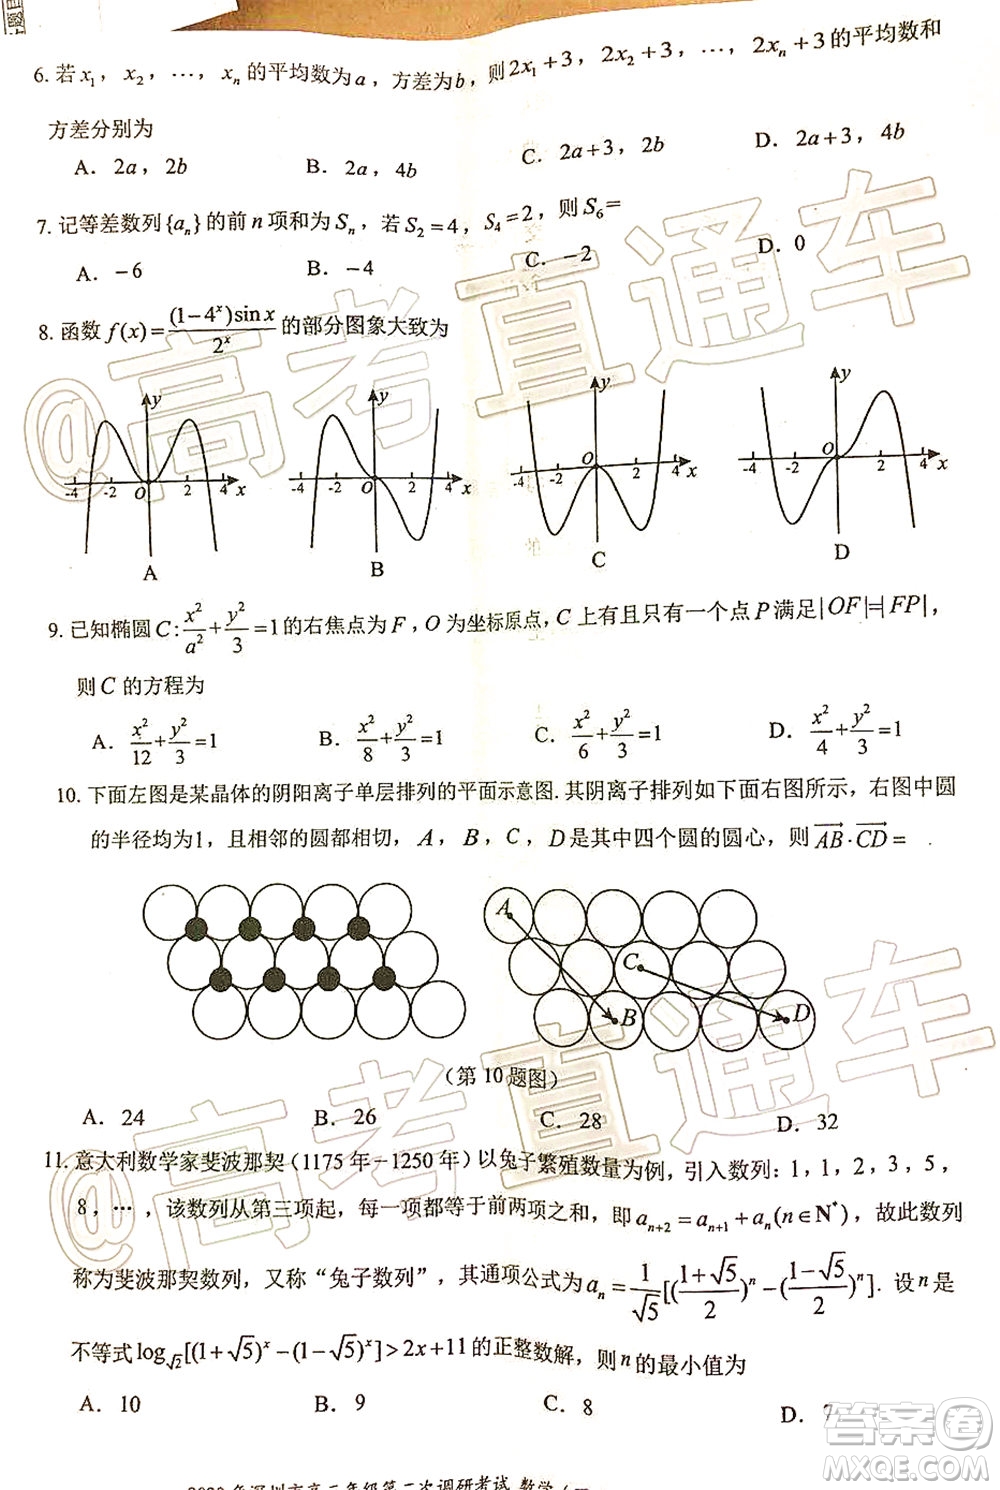 6. 若 x₁, x₂, ⋯, xₙ 的平均数为 a, 方差为 b, 则 2x₁+3, 2x₂+3, ⋯, 2xₙ+3 的平均数和
方差分别为
A. 2a, 2b B. 2a, 4b C. 2a+3, 2b D. 2a+3, 4b
7. 记等差数列{aₙ}的前 n 项和为 Sₙ, 若 S₂=4, S₄=2, 则 S₆=
A. −6 B. −4 C. −2 D. 0
8. 函数 f(x)=(1−4ˣ)sin x / 2ˣ 的部分图象大致为
y y y y
-4 -2 O 2 4 x -4 -2 O 2 4 x -4 -2 O 2 4 x -4 -2 O 2 4 x
A B C D
9. 已知椭圆 C: x²/a² + y²/3 =1 的右焦点为 F, O 为坐标原点, C 上有且只有一个点 P 满足|OF|=|FP|,
则 C 的方程为
A. x²/12 + y²/3 =1 B. x²/8 + y²/3 =1 C. x²/6 + y²/3 =1 D. x²/4 + y²/3 =1
10. 下面左图是某晶体的阴阳离子单层排列的平面示意图. 其阴离子排列如下面右图所示, 右图中圆
的半径均为1, 且相邻的圆都相切, A, B, C, D 是其中四个圆的圆心, 则 AB·CD =
A
C
B D
(第10题图)
A. 24 B. 26 C. 28 D. 32
11. 意大利数学家斐波那契 (1175 年−1250 年) 以兔子繁殖数量为例, 引入数列: 1, 1, 2, 3, 5,
8, ⋯, 该数列从第三项起, 每一项都等于前两项之和, 即 aₙ₊₂ = aₙ₊₁ + aₙ (n∈N*), 故此数列
称为斐波那契数列, 又称“兔子数列”, 其通项公式为 aₙ = 1/√5 [((1+√5)/2)ⁿ − ((1−√5)/2)ⁿ]. 设 n 是
不等式 log_√2[(1+√5)ˣ − (1−√5)ˣ] > 2x+11 的正整数解, 则 n 的最小值为
A. 10 B. 9 C. 8 D. 7
@高考直通车
@高考直通车
答案卷